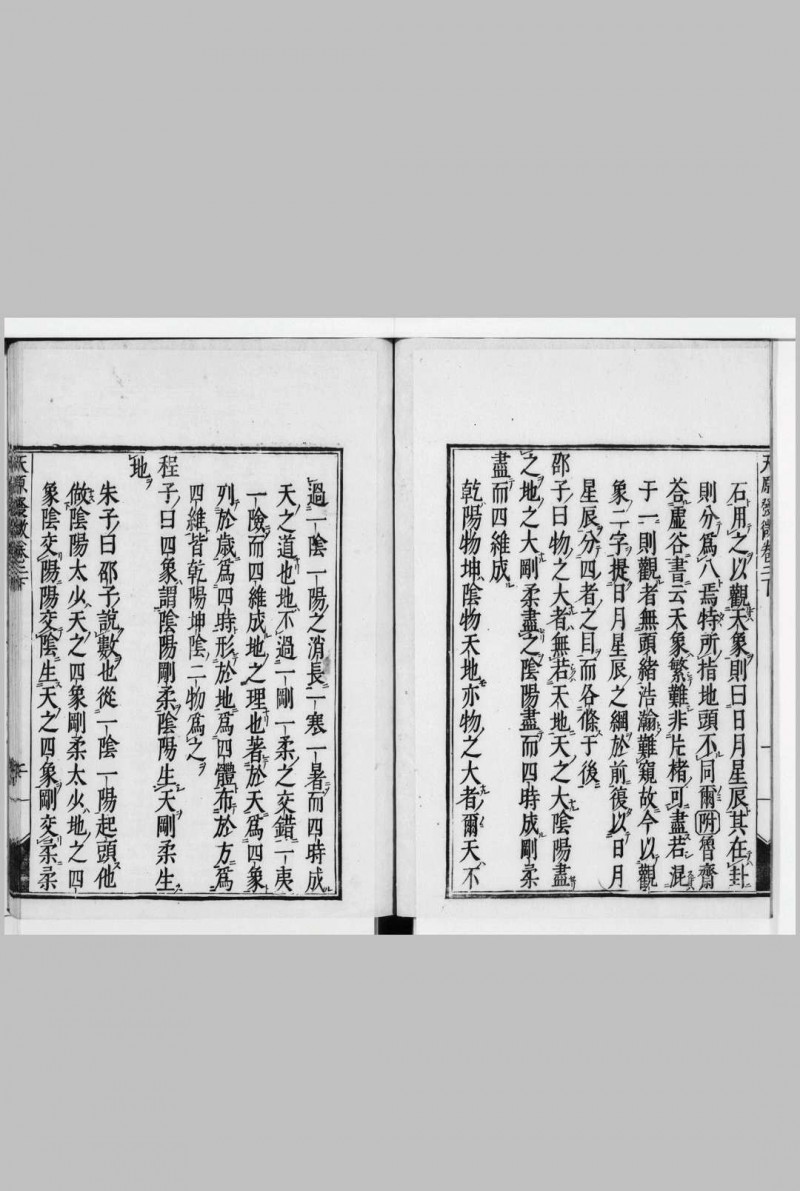 天原發微卷二下
石用之以觀天象則曰日月星辰其在卦
則分爲八焉特所指地頭不同爾附魯齋
荅虛谷書云天象繁難非片楮可盡若混
于一則觀者無頭緒浩瀚難窺故今以觀
象二字提日月星辰之綱於前復以日月
星辰分四者之目而各條于後
邵子曰物之大者無若天地天之大陰陽盡
之地之大剛柔盡之陰陽盡而四時成剛柔
盡而四維成
乾陽物坤陰物天地亦物之大者爾天不
過一陰一陽之消長一寒一暑而四時成
天之道也地不過一剛一柔之交錯一夷
一險而四維成地之理也著於天爲四象
列於歲爲四時形於地爲四體布於方爲
四維皆乾陽坤陰二物爲之
程子曰四象謂陰陽剛柔陰陽生天剛柔生
地
朱子曰邵子說數也從一陰一陽起頭他
做陰陽太少天之四象剛柔太少地之四
象陰交陽陽交陰生天之四象剛交柔柔